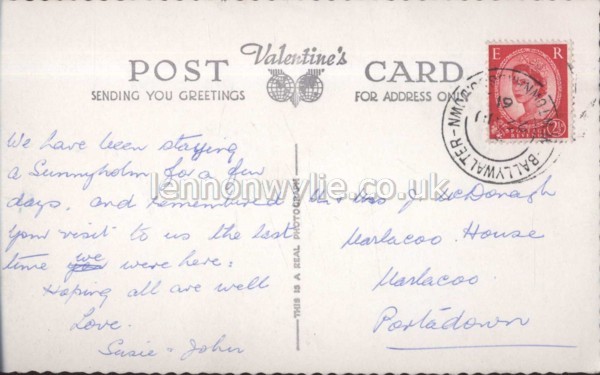 Valentine's
POST CARD
SENDING YOU GREETINGS FOR ADDRESS ONLY
E R
2½
BALLYWALTER
We have been staying
a Sunnyholm for a few
days, and remembered
your visit to us the last
time we were here:
Hoping all are well
Love.
Susie & John
Mr & Mrs J. McDonagh
Marlacoo House
Marlacoo
Portadown
THIS IS A REAL PHOTOGRAPH
lennonwylie.co.uk